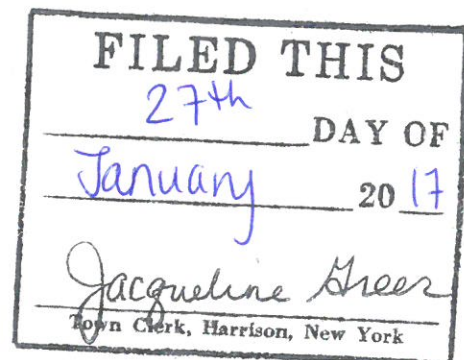 FILED THIS
27th
DAY OF
January 20 17
Jacqueline Greer
Town Clerk, Harrison, New York